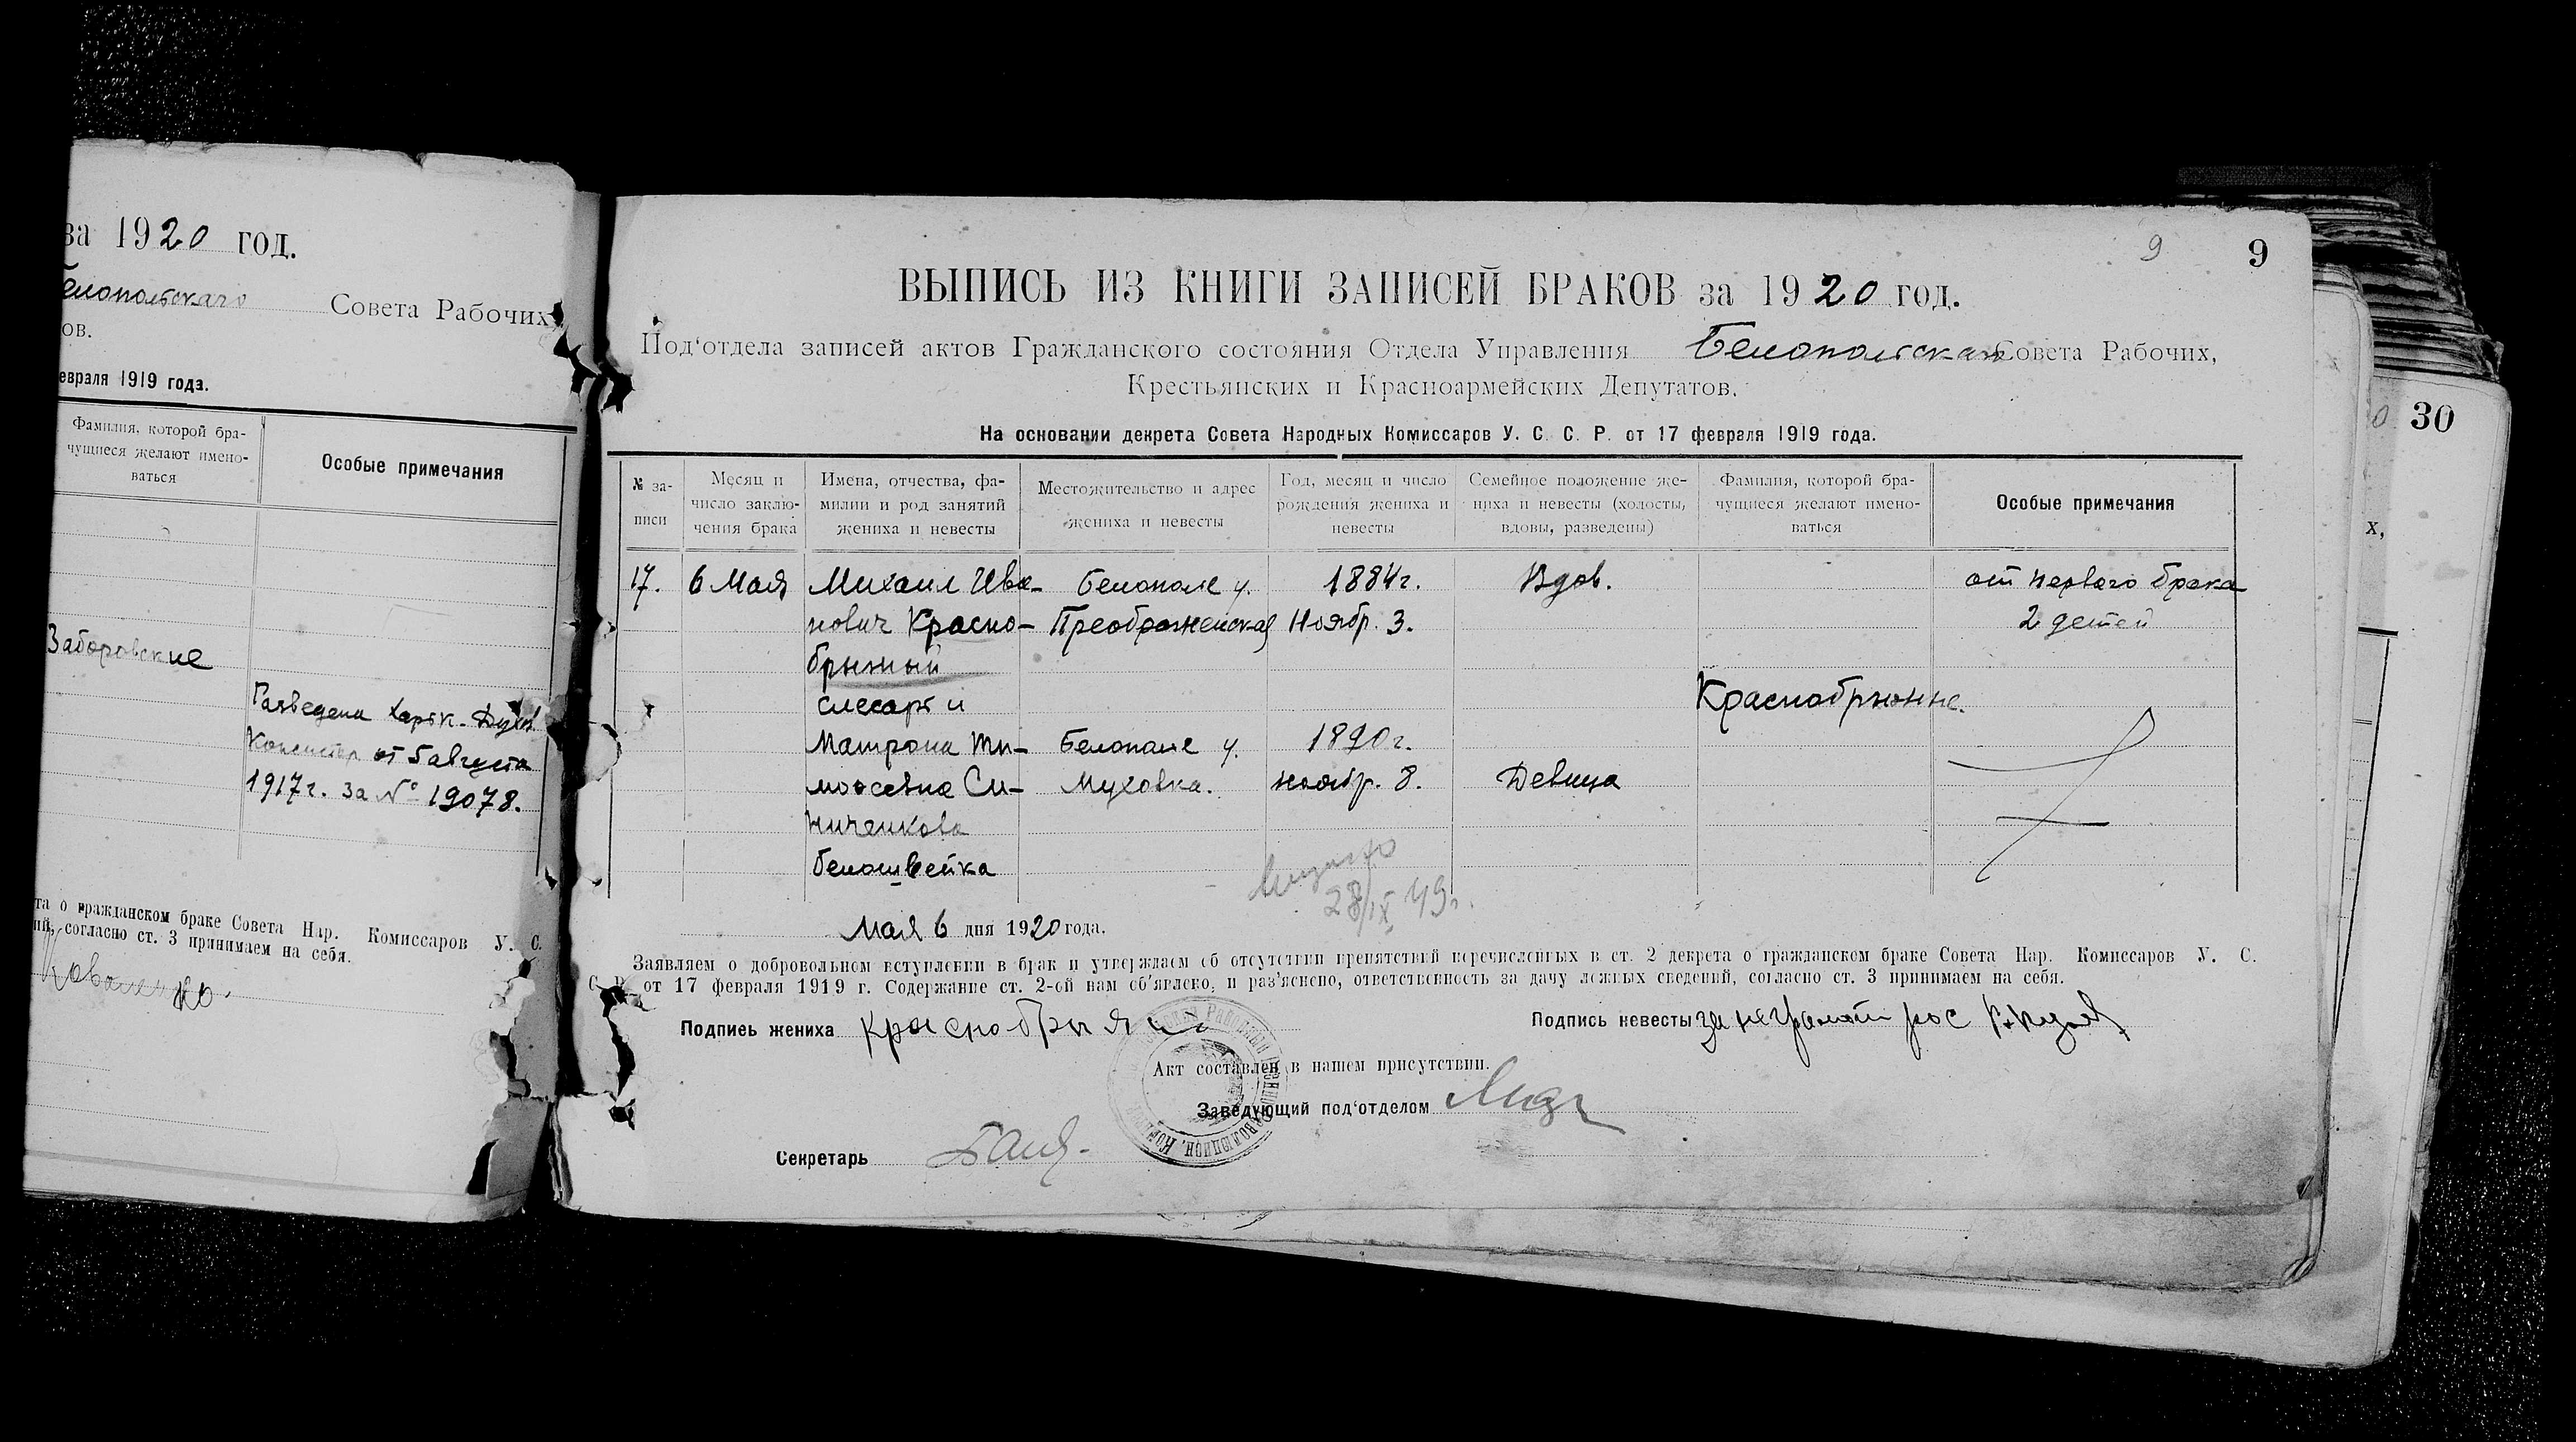 за 1920 год.
Совета Рабочих,
ов.
евраля 1919 года.
Фамилия, которой бра-
чущиеся желают имено-
ваться
Особые примечания
Заборовские
Разведена Харьк. Духов.
Консистор от 5 августа
1917 г. за № 19078.
та о гражданском браке Совета Нар. Комиссаров У. С.
ий, согласно ст. 3 принимаем на себя.
Коваленко
9 9
ВЫПИСЬ ИЗ КНИГИ ЗАПИСЕЙ БРАКОВ за 1920 год.
Под'отдела записей актов Гражданского состояния Отдела Управления Белопольскаго Совета Рабочих,
Крестьянских и Красноармейских Депутатов.
На основании декрета Совета Народных Комиссаров У. С. С. Р. от 17 февраля 1919 года.
№ за-
писи
Месяц и
число заклю-
чения брака
Имена, отчества, фа-
милии и род занятий
жениха и невесты
Местожительство и адрес
жениха и невесты
Год, месяц и число
рождения жениха и
невесты
Семейное положение же-
ниха и невесты (холосты,
вдовы, разведены)
Фамилия, которой бра-
чущиеся желают имено-
ваться
Особые примечания
17. 6 Мая Михаил Ива- Белополе у. 1884 г. Вдов. от первого брака
нович Красно- Преображенская Ноябр. 3. 2 детей
брыжый
слесарь и Краснобрыжие.
Матрона Ти- Белополе у. 1890 г.
мофеевна Си- Муховка. ноябр. 8. Девица
ниченкова
белошвейка
28/IX 49 г.
Мая 6 дня 1920 года.
Заявляем о добровольном вступлении в брак и утверждаем об отсутствии препятствий перечисленных в ст. 2 декрета о гражданском браке Совета Нар. Комиссаров У. С.
С. Р. от 17 февраля 1919 г. Содержание ст. 2-ой нам об'явлено, и раз'яснено, ответственность за дачу ложных сведений, согласно ст. 3 принимаем на себя.
Подпись жениха
Подпись невесты за неграмот рос
Акт составлен в нашем присутствии.
Заведующий под'отделом
Секретарь
30
х,